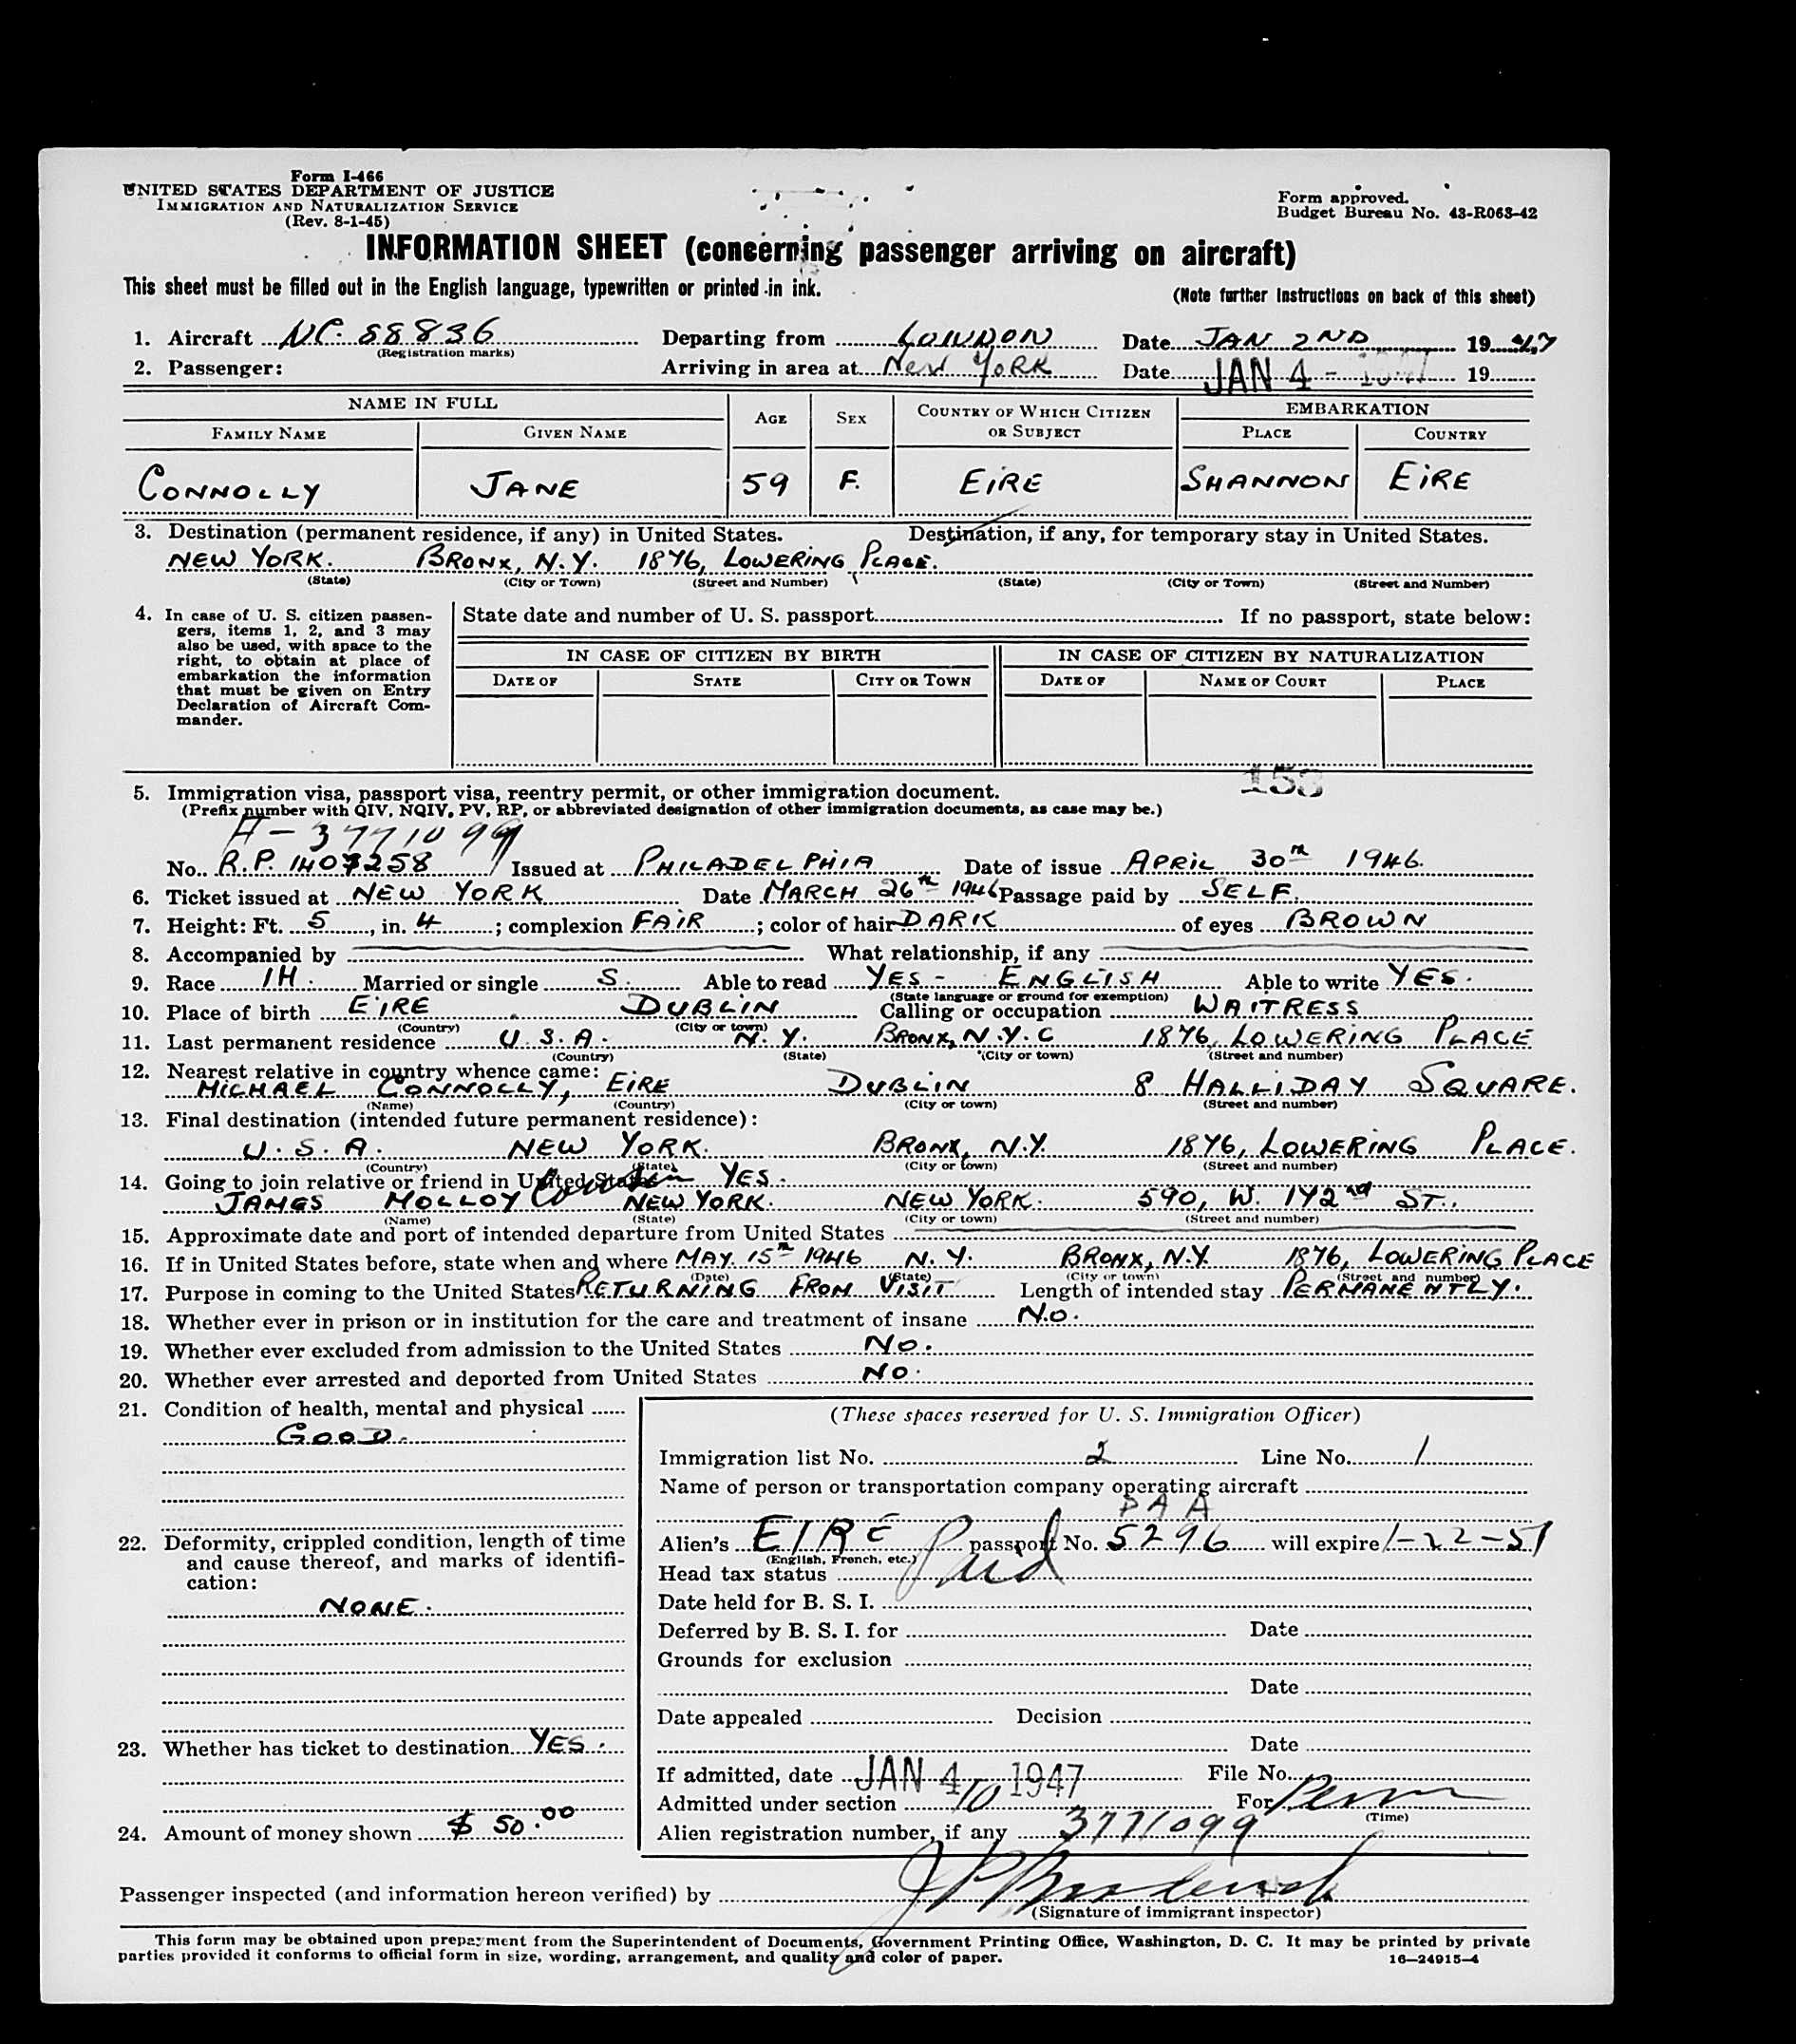 Form I-466
UNITED STATES DEPARTMENT OF JUSTICE
IMMIGRATION AND NATURALIZATION SERVICE
(Rev. 8-1-45)
Form approved.
Budget Bureau No. 43-R063-42
INFORMATION SHEET (concerning passenger arriving on aircraft)
This sheet must be filled out in the English language, typewritten or printed in ink.
(Note further instructions on back of this sheet)
1. Aircraft NC. 88836 Departing from LONDON Date JAN 2ND 1947
(Registration marks)
2. Passenger: Arriving in area at New YORK Date JAN 4 - 1947 19
NAME IN FULL AGE SEX COUNTRY OF WHICH CITIZEN OR SUBJECT EMBARKATION
FAMILY NAME GIVEN NAME PLACE COUNTRY
CONNOLLY JANE 59 F. EIRE SHANNON EIRE
3. Destination (permanent residence, if any) in United States. Destination, if any, for temporary stay in United States.
NEW YORK. BRONX, N.Y. 1876, LOWERING PLACE.
(State) (City or Town) (Street and Number) (State) (City or Town) (Street and Number)
4. In case of U. S. citizen passen-
gers, items 1, 2, and 3 may
also be used, with space to the
right, to obtain at place of
embarkation the information
that must be given on Entry
Declaration of Aircraft Com-
mander.
State date and number of U. S. passport If no passport, state below:
IN CASE OF CITIZEN BY BIRTH IN CASE OF CITIZEN BY NATURALIZATION
DATE OF STATE CITY OR TOWN DATE OF NAME OF COURT PLACE
153
5. Immigration visa, passport visa, reentry permit, or other immigration document.
(Prefix number with QIV, NQIV, PV, RP, or abbreviated designation of other immigration documents, as case may be.)
A-3771099
No. R.P. 1407258 Issued at PHILADELPHIA Date of issue APRIL 30th 1946.
6. Ticket issued at NEW YORK Date MARCH 26th 1946 Passage paid by SELF.
7. Height: Ft. 5, in. 4; complexion FAIR; color of hair DARK of eyes BROWN
8. Accompanied by What relationship, if any
9. Race IH. Married or single S. Able to read YES - ENGLISH Able to write YES.
(State language or ground for exemption)
10. Place of birth EIRE DUBLIN Calling or occupation WAITRESS
(Country) (City or town)
11. Last permanent residence U.S.A. N.Y. BRONX, N.Y.C 1876, LOWERING PLACE
(Country) (State) (City or town) (Street and number)
12. Nearest relative in country whence came:
MICHAEL CONNOLLY, EIRE DUBLIN 8 HALLIDAY SQUARE.
(Name) (Country) (City or town) (Street and number)
13. Final destination (intended future permanent residence):
U.S.A. NEW YORK. BRONX, N.Y. 1876, LOWERING PLACE.
(Country) (State) (City or town) (Street and number)
14. Going to join relative or friend in United States YES.
JAMES MOLLOY Cousin NEW YORK. NEW YORK. 590, W. 172nd ST.
(Name) (State) (City or town) (Street and number)
15. Approximate date and port of intended departure from United States
16. If in United States before, state when and where MAY. 15th 1946 N.Y. BRONX, N.Y. 1876, LOWERING PLACE
(Date) (State) (City or town) (Street and number)
17. Purpose in coming to the United States RETURNING FROM VISIT Length of intended stay PERMANENTLY.
18. Whether ever in prison or in institution for the care and treatment of insane NO.
19. Whether ever excluded from admission to the United States NO.
20. Whether ever arrested and deported from United States NO.
21. Condition of health, mental and physical
GOOD.
22. Deformity, crippled condition, length of time
and cause thereof, and marks of identifi-
cation:
NONE.
23. Whether has ticket to destination YES.
24. Amount of money shown $ 50.00
(These spaces reserved for U. S. Immigration Officer)
Immigration list No. 2 Line No. 1
Name of person or transportation company operating aircraft
PAA
Alien's EIRE passport No. 5296 will expire 1-22-51
(English, French, etc.)
Head tax status Paid
Date held for B. S. I.
Deferred by B. S. I. for Date
Grounds for exclusion
Date
Date appealed Decision
Date
If admitted, date JAN 4 1947 File No.
Admitted under section 10 For Perm
(Time)
Alien registration number, if any 3771099
Passenger inspected (and information hereon verified) by
(Signature of immigrant inspector)
This form may be obtained upon prepayment from the Superintendent of Documents, Government Printing Office, Washington, D. C. It may be printed by private
parties provided it conforms to official form in size, wording, arrangement, and quality and color of paper.
16—24915-4